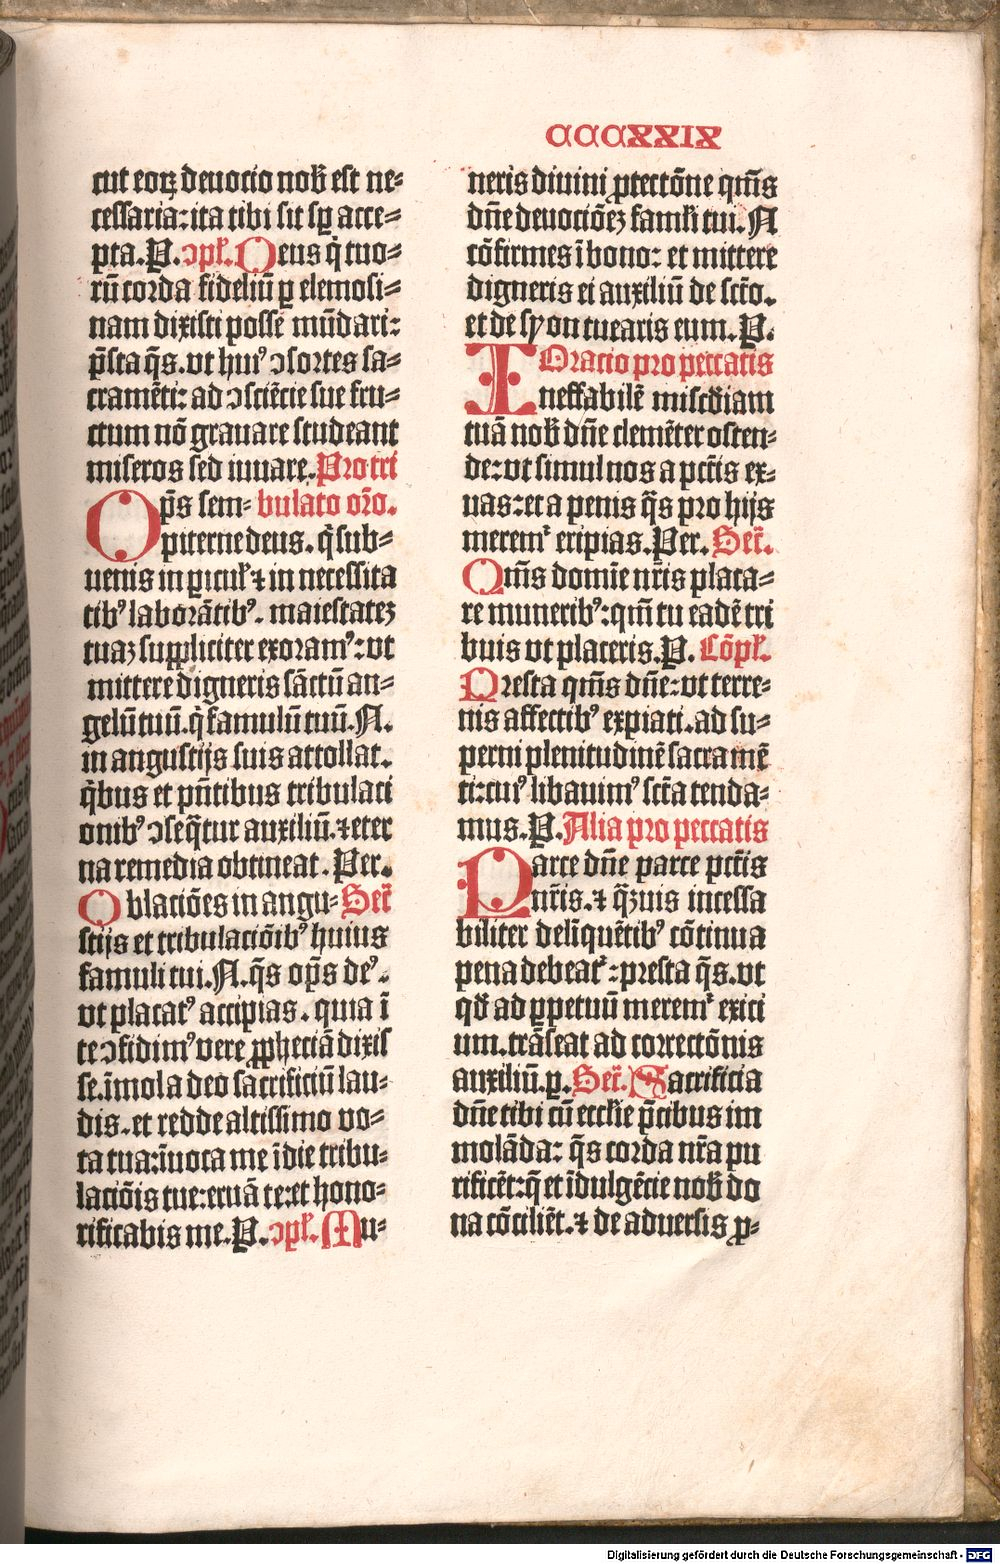 CCCXXIX
cut eoꝝ deuocio nob̄ est ne⸗
cessaria: ita tibi sit sp̄ acce⸗
pta. P. ↄpl̄. Deus q̄ tuo⸗
rū corda fideliū ꝑ elemosi⸗
nam dixisti posse mūdari:
p̄sta q̄s. vt huiꝰ ↄsortes sa⸗
cramēti: ad ↄsciēcie sue fru⸗
ctum nō grauare studeant
miseros sed iuuare. Pro tri
Op̄s sem⸗ bulato or̄o.
piterne deus. q̄ sub⸗
uenis in ꝑicul̄ ⁊ in necessita
tibꝰ laborātibꝰ. maiestatez
tuaz suppliciter exoramꝰ: vt
mittere digneris sāctū an⸗
gelū tuū. q̄ famulū tuū. N.
in angustijs suis attollat.
q̄bus et pn̄tibus tribulaci
onibꝰ ↄseq̄tur auxiliū. ⁊ eter
na remedia obtineat. Per.
Oblaciōes in angu⸗ Secr̄
stijs et tribulaciōibꝰ huius
famuli tui. N. q̄s op̄s deꝰ.
vt placatꝰ accipias. quia ī
te ↄfidimꝰ vere ꝓpheciā dixis
se. īmola deo sacrificiū lau⸗
dis. et redde altissimo vo⸗
ta tua: īuoca me ī die tribu⸗
laciōis tue: eruā te: et hono⸗
rificabis me. P. ↄpl̄. Mu⸗
neris diuini ꝓtectōne qm̄s
dn̄e deuociōez faml̄i tui. N
cōfirmes ī bono: et mittere
digneris ei auxiliū de sct̄o.
et de syon tuearis eum. P.
Oracio pro peccatis
Ineffabilē misc̄diam
tuā nob̄ dn̄e clemēter osten⸗
de: vt simul nos a pctīs ex⸗
uas: et a penis q̄s pro hijs
meremr̄ eripias. Per. Secr̄.
Qm̄s domīe nr̄is placa⸗
re muneribꝰ: qm̄ tu eadē tri
buis vt placeris. P. Cōpl̄.
Presta qm̄s dn̄e: vt terre⸗
nis affectibꝰ expiati. ad su⸗
perni plenitudinē sacramē
ti: cuiꝰ libauimꝰ sct̄a tenda⸗
mus. P. Alia pro peccatis
Parce dn̄e parce pctīs
nr̄is. ⁊ q̄zuis incessa
biliter deliquētibꝰ cōtinua
pena debeatr̄: presta q̄s. vt
qd̄ ad ꝑpetuū meremr̄ exici
um. trāseat ad correctōnis
auxiliū. ꝑ. Secr̄. Sacrificia
dn̄e tibi cū eccl̄ie p̄cibus im
molāda: q̄s corda nr̄a pu
rificēt: q̄ et īdulgēcie nob̄ do
na cōciliēt. ⁊ de aduersis ꝓ⸗
Digitalisierung gefördert durch die Deutsche Forschungsgemeinschaft - DFG